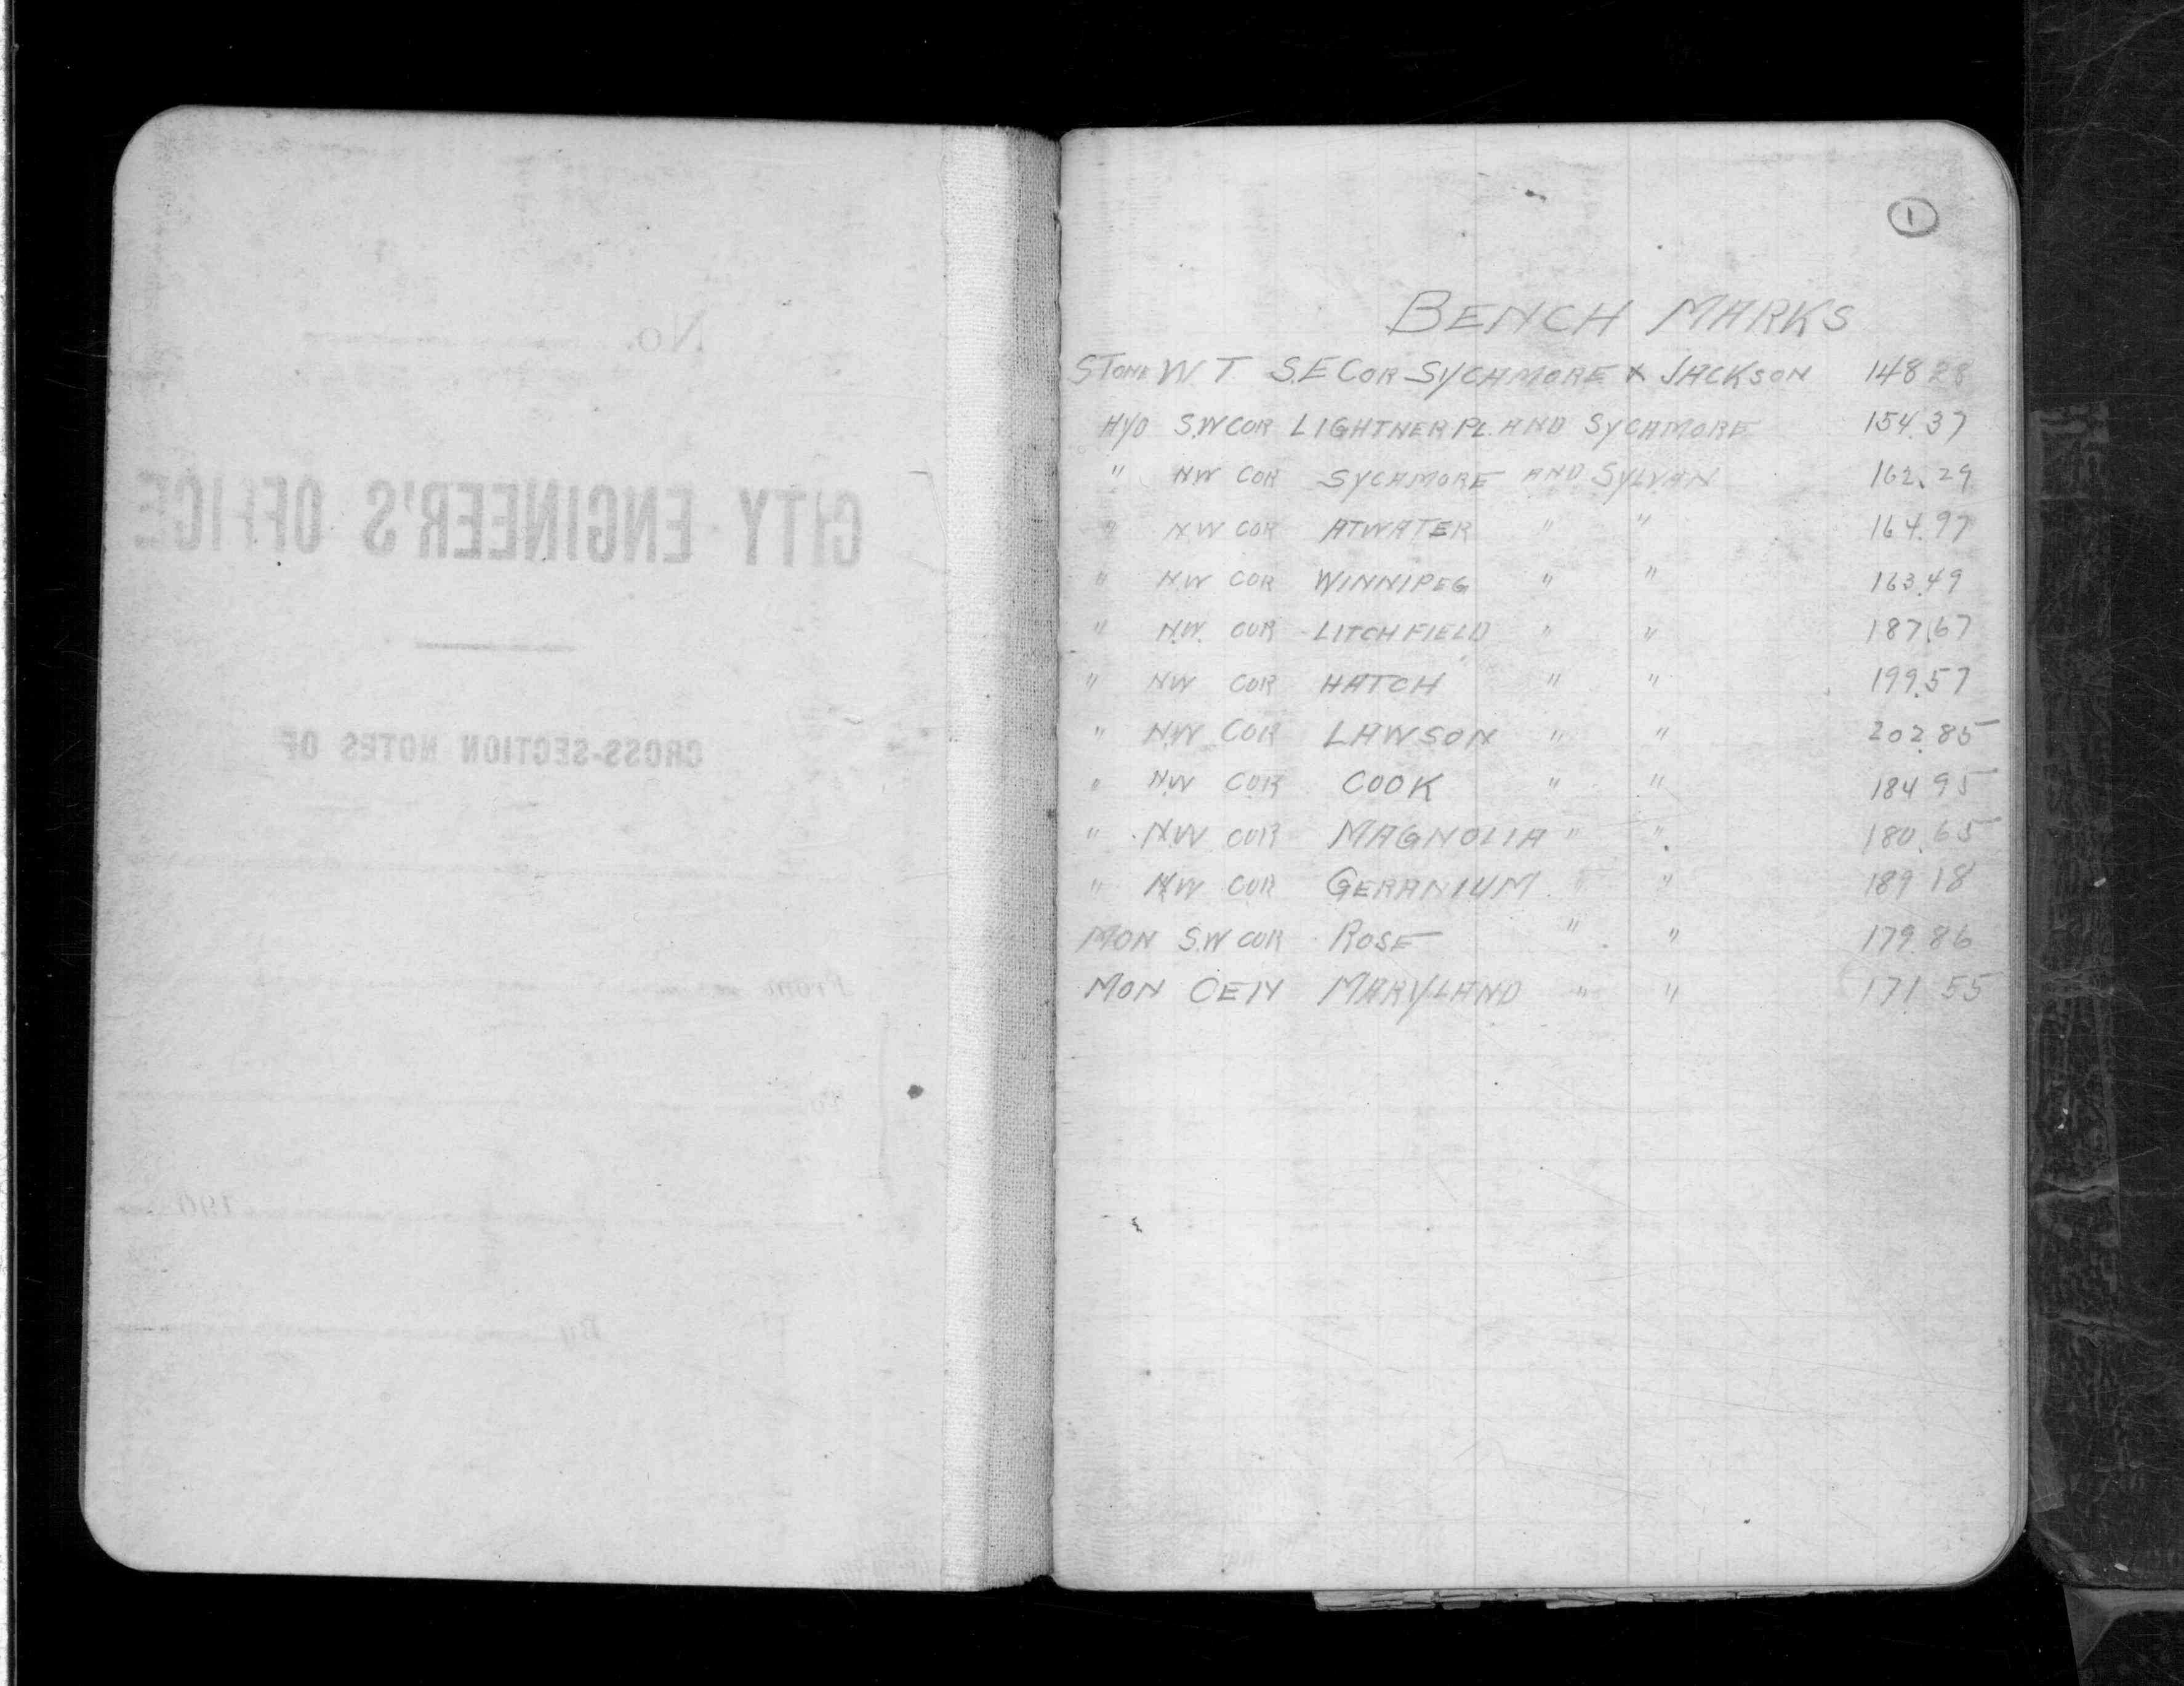 No.
CITY ENGINEER'S OFFICE
CROSS-SECTION NOTES OF
From
To
190
By
1
BENCH MARKS
STONE W.T. S.E COR SYCHMORE & JACKSON 148 28
HYD S.W COR LIGHTNER PL. AND SYCAMORE 154.37
" N.W COR SYCAMORE AND SYLVAN 162.29
" N.W COR ATWATER " " 164.97
" N.W COR WINNIPEG " " 163.49
" N.W. COR LITCHFIELD " " 187.67
" N.W COR HATCH " " 199.57
" N.W COR LAWSON " " 202.85
" N.W COR COOK " " 184 95
" N.W COR MAGNOLIA " " 180.65
" N.W COR GERANIUM " " 189 18
MON S.W COR ROSE " " 179.86
MON CEN MARYLAND " " 171.55